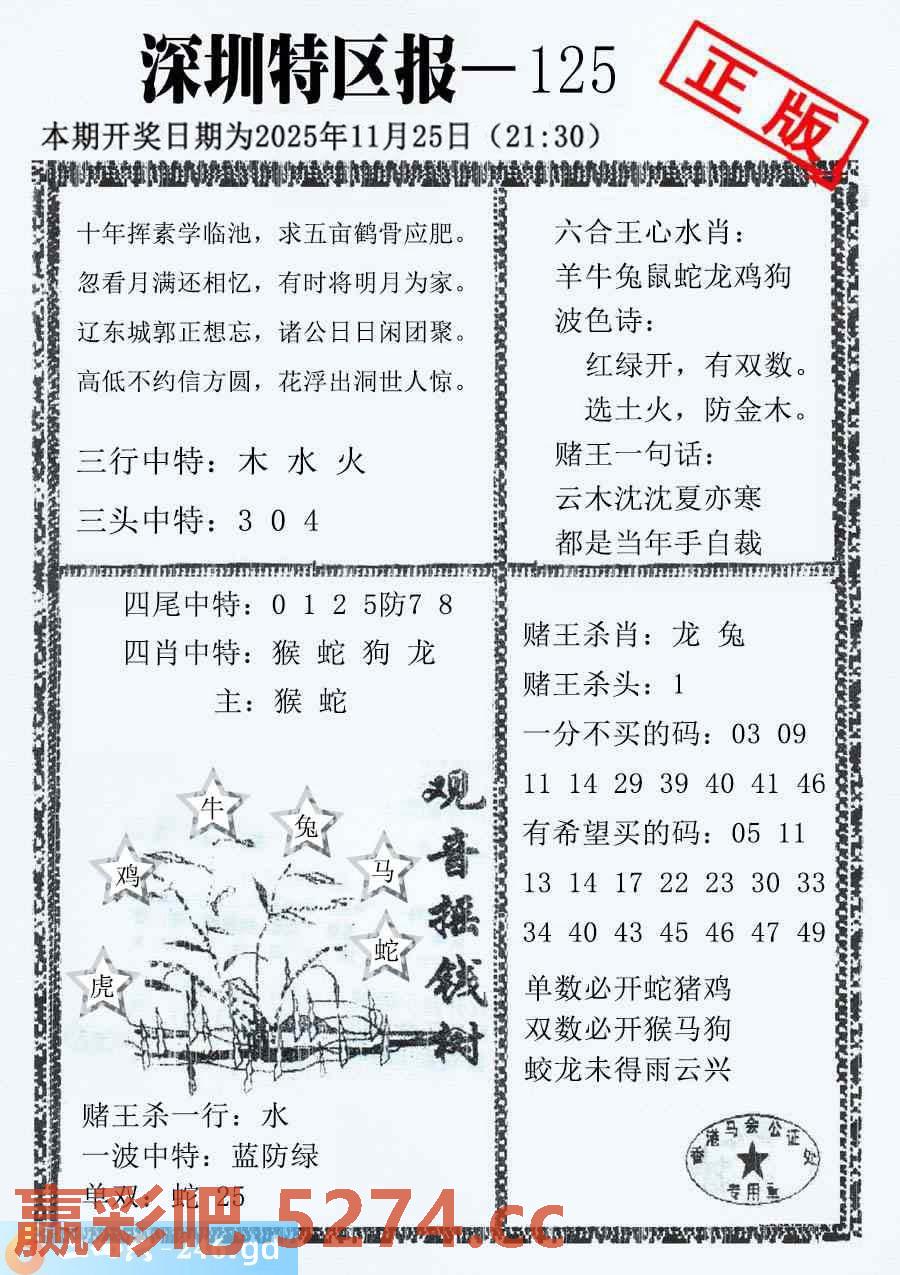 深圳特区报—125
正版
本期开奖日期为2025年11月25日（21:30）
十年挥素学临池，求五亩鹤骨应肥。
忽看月满还相忆，有时将明月为家。
辽东城郭正想忘，诸公日日闲团聚。
高低不约信方圆，花浮出洞世人惊。
三行中特：木 水 火
三头中特：3 0 4
六合王心水肖：
羊牛兔鼠蛇龙鸡狗
波色诗：
红绿开，有双数。
选土火，防金木。
赌王一句话：
云木沈沈夏亦寒
都是当年手自裁
四尾中特：0 1 2 5防7 8
四肖中特：猴 蛇 狗 龙
主：猴 蛇
牛
兔
鸡
马
蛇
虎
观音摇钱树
赌王杀一行：水
一波中特：蓝防绿
单双：蛇 25
赌王杀肖：龙 兔
赌王杀头：1
一分不买的码：03 09
11 14 29 39 40 41 46
有希望买的码：05 11
13 14 17 22 23 30 33
34 40 43 45 46 47 49
单数必开蛇猪鸡
双数必开猴马狗
蛟龙未得雨云兴
香港马会公证处
专用章
赢彩吧 5274.cc